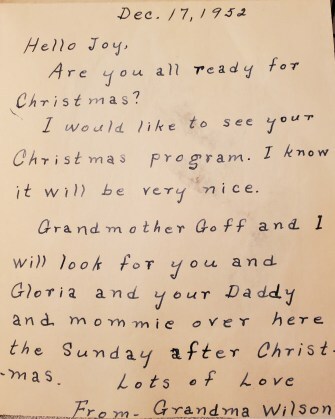 Dec. 17, 1952
Hello Joy,
Are you all ready for
Christmas?
I would like to see your
Christmas program. I know
it will be very nice.
Grandmother Goff and I
will look for you and
Gloria and your Daddy
and mommie over here
the Sunday after Christ-
-mas. Lots of Love
From- Grandma Wilson